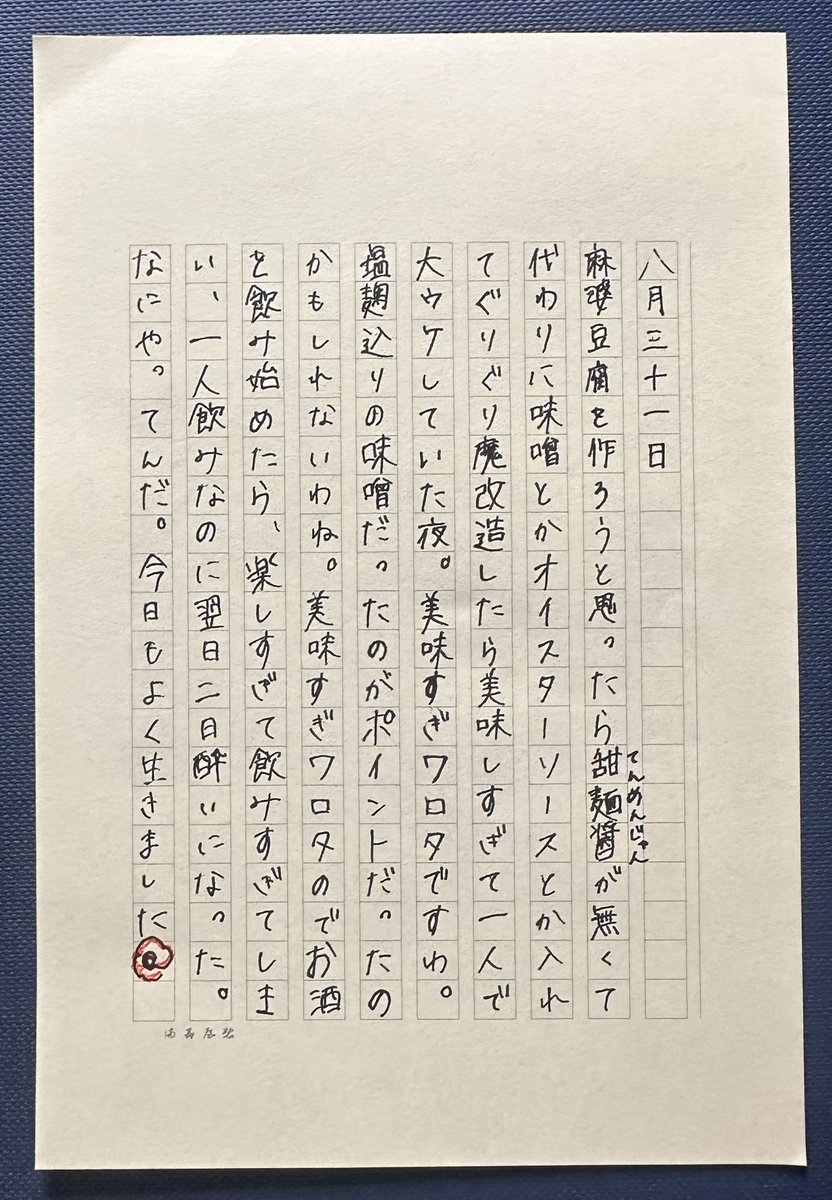 八月三十一日
麻婆豆腐を作ろうと思ったら甜麺醤が無くて
てんめんじゃん
代わりに味噌とかオイスターソースとか入れ
てぐりぐり魔改造したら美味しすぎて一人で
大ウケしていた夜。美味すぎワロタですわ。
塩麹込りの味噌だったのがポイントだったの
かもしれないわね。美味すぎワロタのでお酒
を飲み始めたら、楽しすぎて飲みすぎてしま
い、一人飲みなのに翌日二日酔いになった。
なにやってんだ。今日もよく生きました